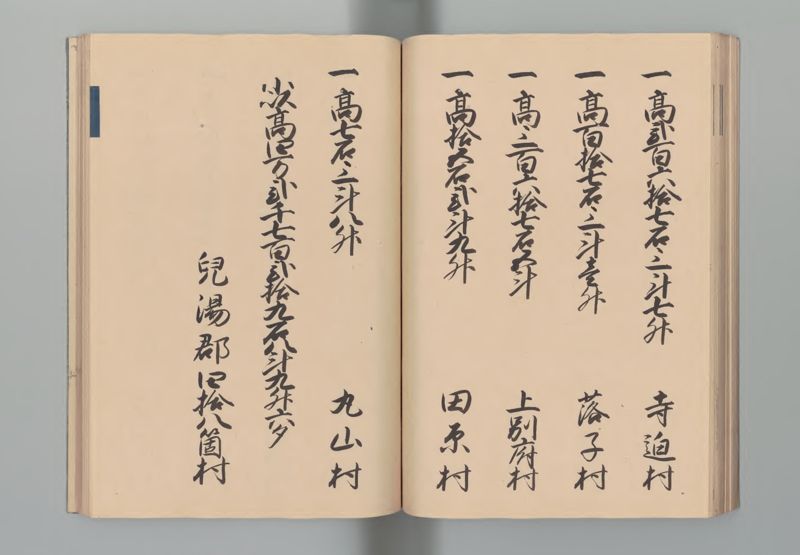 一高弐百六拾七石三斗七升 寺迫村
一高百拾七石三斗壱升 落子村
一高三百六拾七石五斗 上別府村
一高拾五石弐斗九升 田原村
一高七石三斗八升 丸山村
高四万弐千七百弐拾九石八斗九升六夕
兒湯郡四拾八箇村